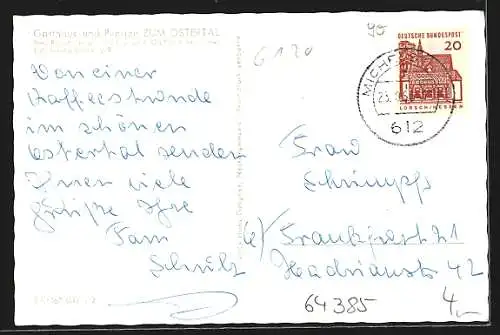 Gasthaus und Pension ZUM OSTERTAL
Von einer
Kaffeestunde
im schönen
Ostertal senden
Ihnen viele
Grüße Ihre
Fam
Schulz
95
6120
DEUTSCHE BUNDESPOST
20
LORSCH/HESSEN
MICHELSTADT
23.
612
Frau
Schimpf
6) Frankfurt 21
Hadrianstr 42
64385
4,-